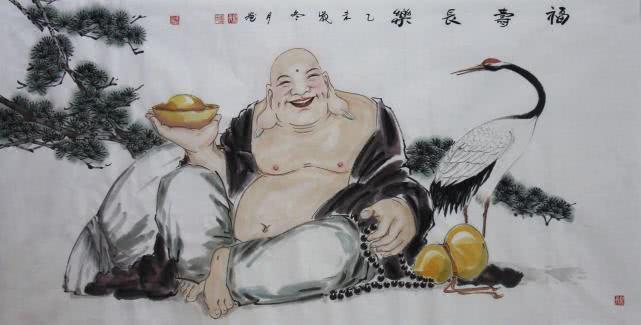 福壽長樂 乙未歲冬月